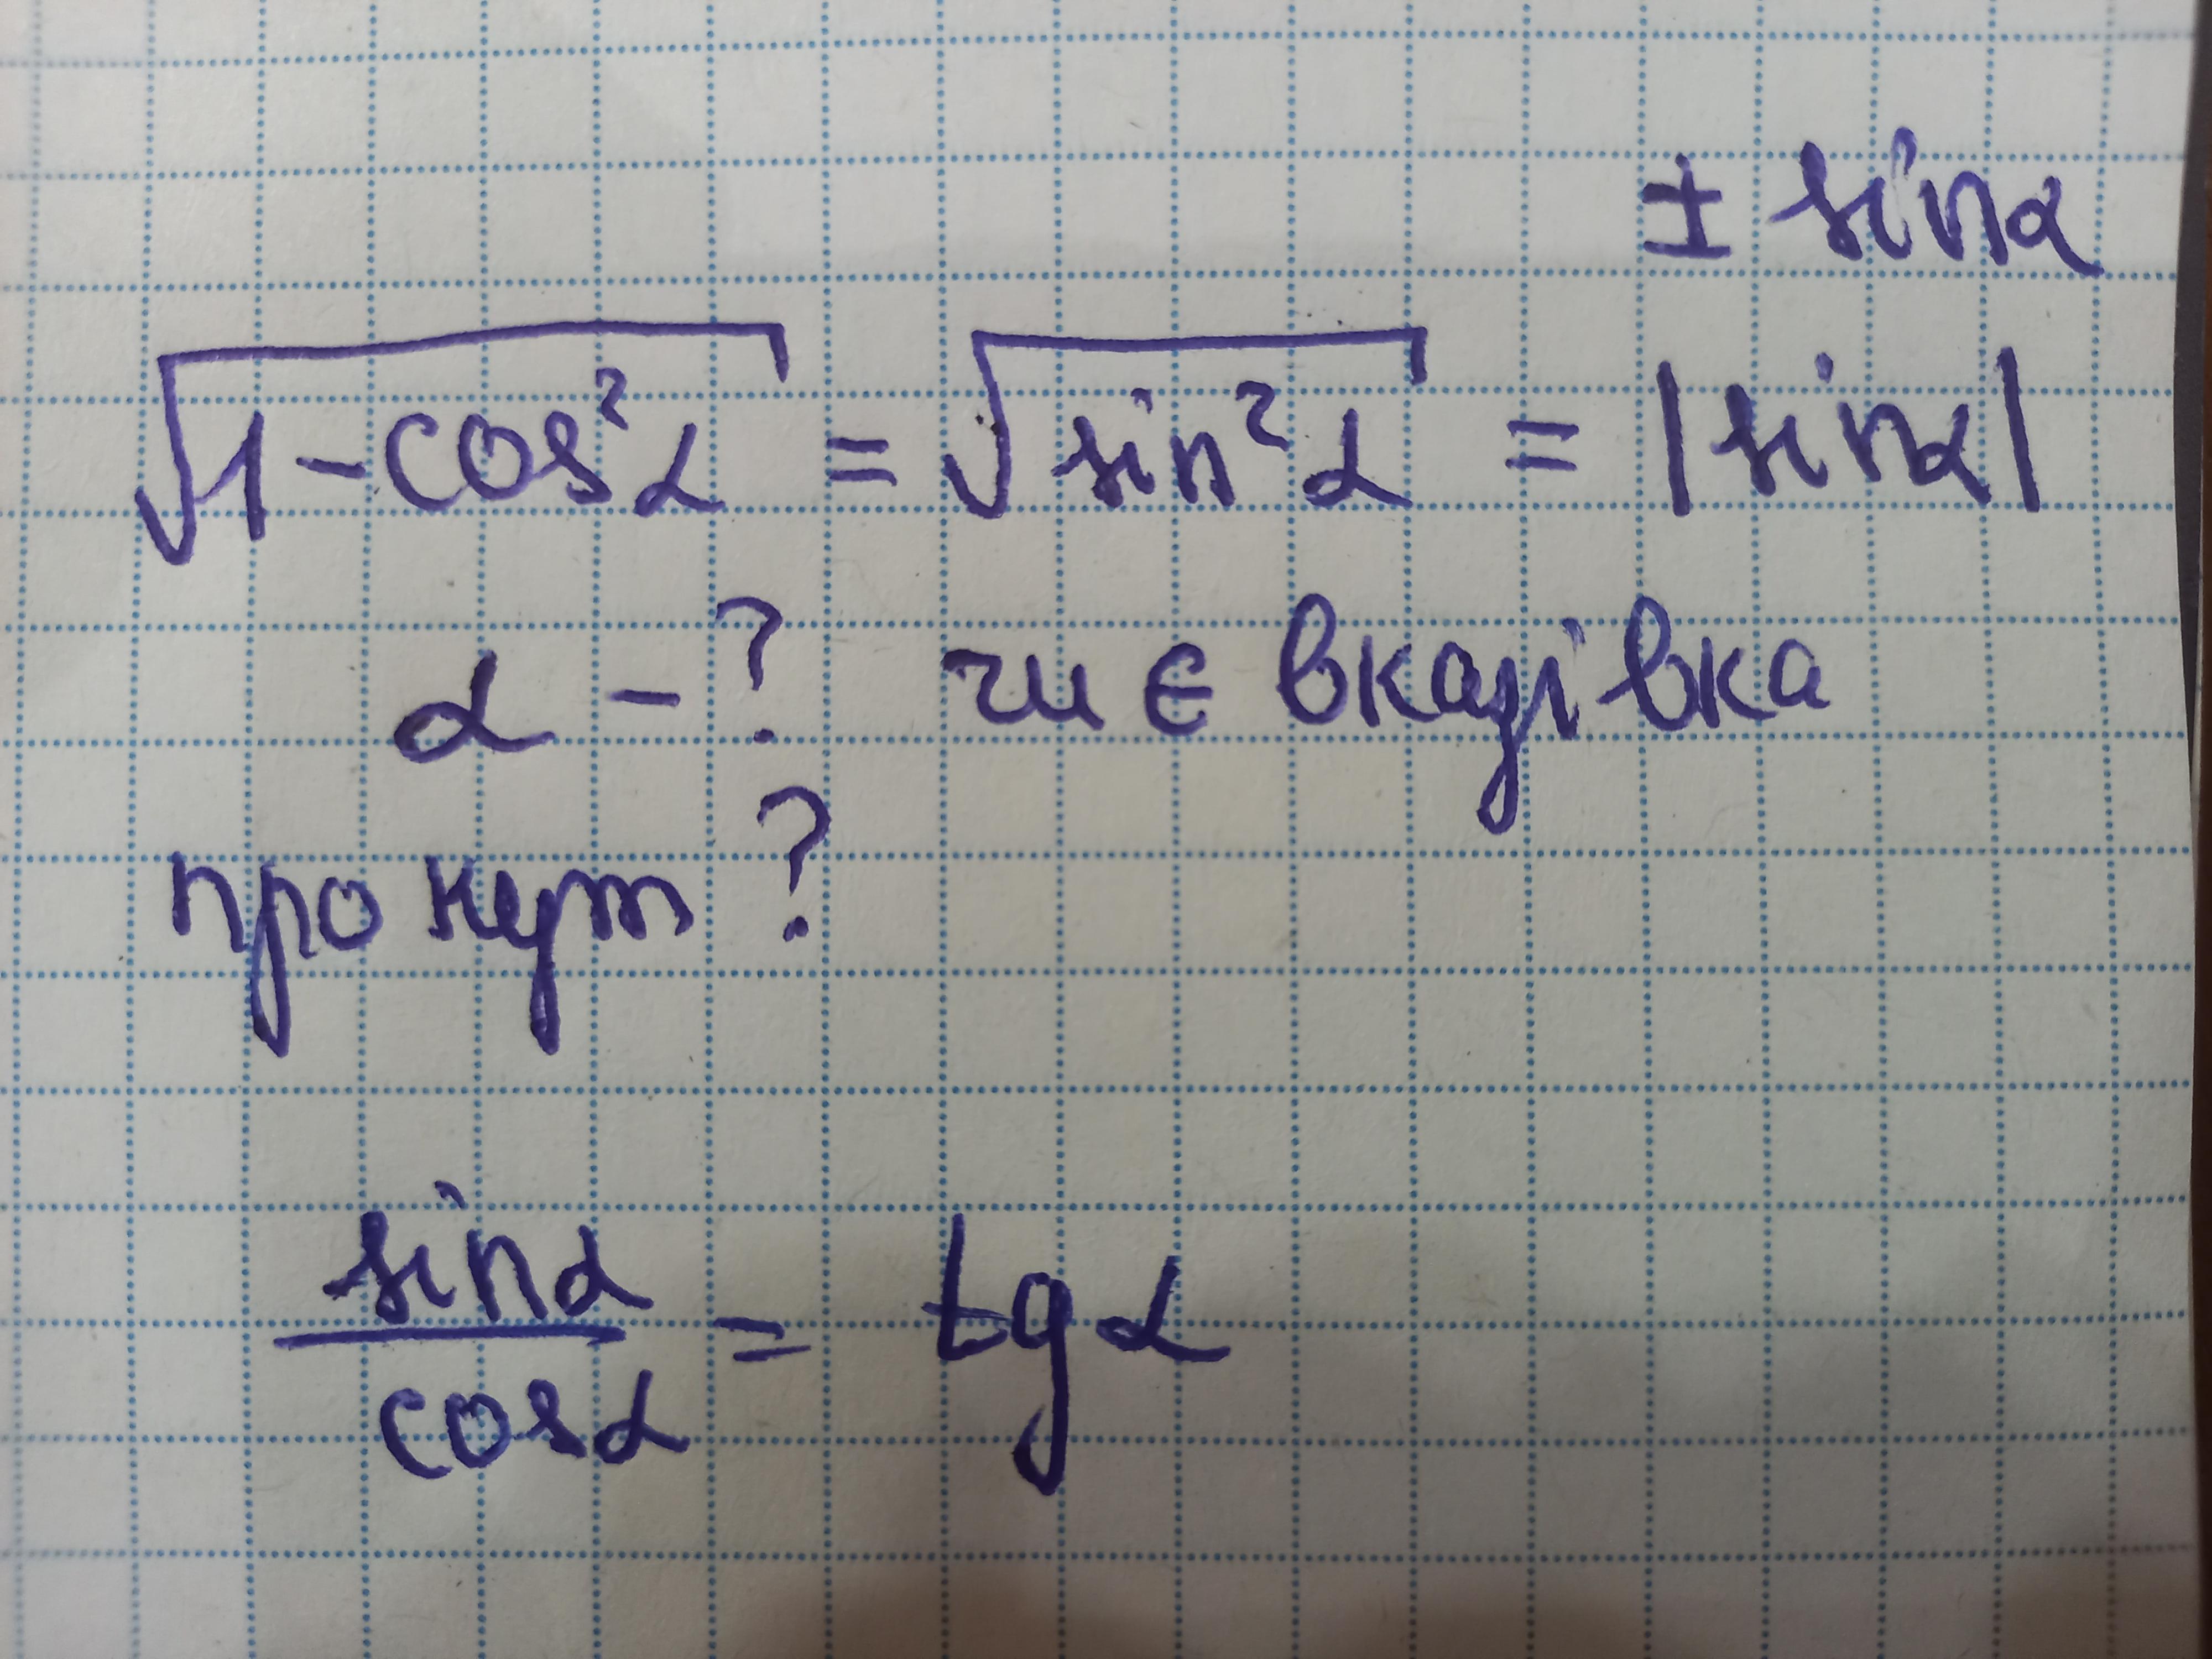 ± sinα
√1-cos²α = √sin²α = |sinα|
α - ? чи є вказівка
про кут?
sinα
cosα = tgα